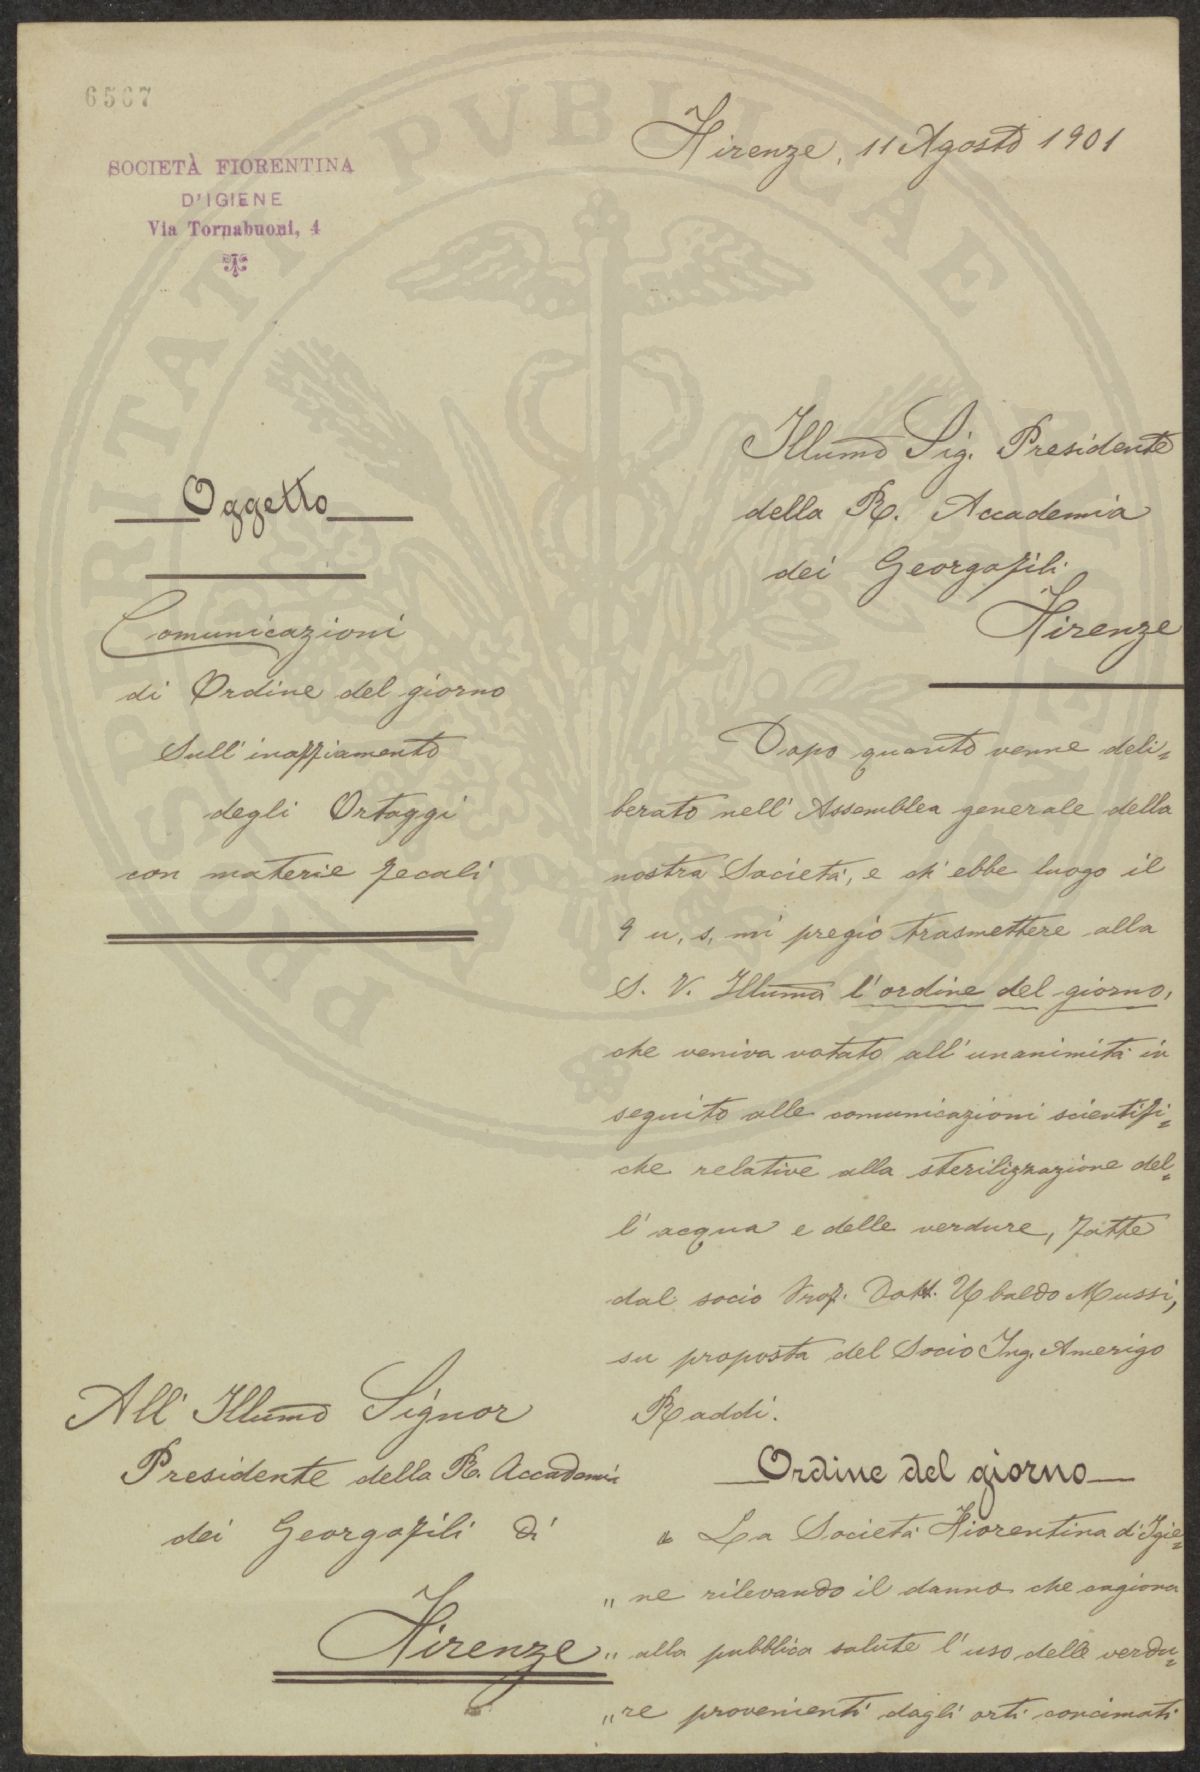 6567
SOCIETÀ FIORENTINA
D'IGIENE
Via Tornabuoni, 4
Firenze, 11 Agosto 1901
Illumo Sig. Presidente
della R. Accademia
dei Georgofili
Firenze
Oggetto
Comunicazioni
di Ordine del giorno
sull'inaffiamento
degli Ortaggi
con materie fecali
Dopo quanto venne deli=
berato nell'Assemblea generale della
nostra Società, e ch'ebbe luogo il
9 u, s, mi pregio trasmettere alla
S. V. Illuma l'ordine del giorno,
che veniva votato all'unanimità in
seguito alle comunicazioni scientifi=
che relative alla sterilizzazione del=
l'acqua e delle verdure, fatte
dal socio Prof. Dott. Ubaldo Mussi,
su proposta del Socio Ing. Amerigo
Raddi.
Ordine del giorno
« La Società Fiorentina d'Igie=
" ne rilevando il danno che cagiona
" alla pubblica salute l'uso delle verdu=
" re provenienti dagli orti concimati
All'Illumo Signor
Presidente della R. Accademia
dei Georgofili di
Firenze
PROSPERITATI PUBLICAE AUGENDAE